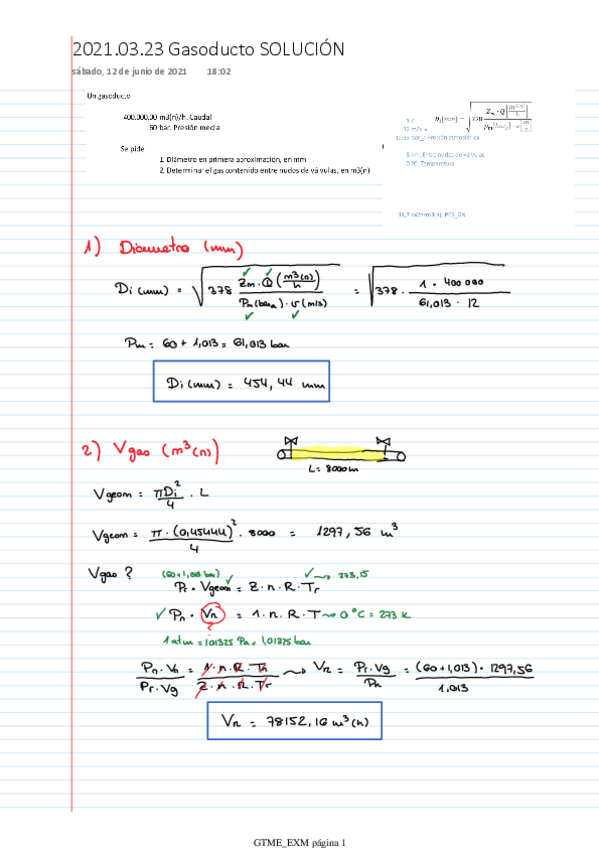 2021.03.23 Gasoducto SOLUCIÓN
sábado, 12 de junio de 2021 18:02
Un gasoducto
400.000,00 m3(n)/h. Caudal
60 bar. Presión media
Se pide
1. Diámetro en primera aproximación, en mm
2. Determinar el gas contenido entre nudos de válvulas, en m3(n)
1 Z
12 m/s v
presión atmosférica
8 km. Entre nudos de válvulas
0 ºC. Temperatura
1) Diametro (mm)
Di (mm) = √ 378 Zm · Q (m3(n)/h) / Pm (bara) · v (m/s) = √ 378 · 1 · 400 000 / 61,013 · 12
Pm = 60 + 1,013 = 61,013 bar
Di (mm) = 454,44 mm
2) Vgas (m3(n))
L = 8000m
Vgeom = πDi² / 4 · L
Vgeom = π · (0,45444)² / 4 · 8000 = 1297,56 m3
Vgas ? (60+1,013 bar) 273,15
Pr · Vgeom = Z · n · R · Tr
Pn · Vn = 1 · n · R · T 0ºC = 273 K
?
1 atm = 101325 Pa = 1,01325 bar
Pn · Vn / Pr · Vg = 1 · n · R · Tn / Z · n · R · Tr Vn = Pr · Vg / Pn = (60+1,013) · 1297,56 / 1,013
Vn = 78152,16 m3(n)
GTME_EXM página 1